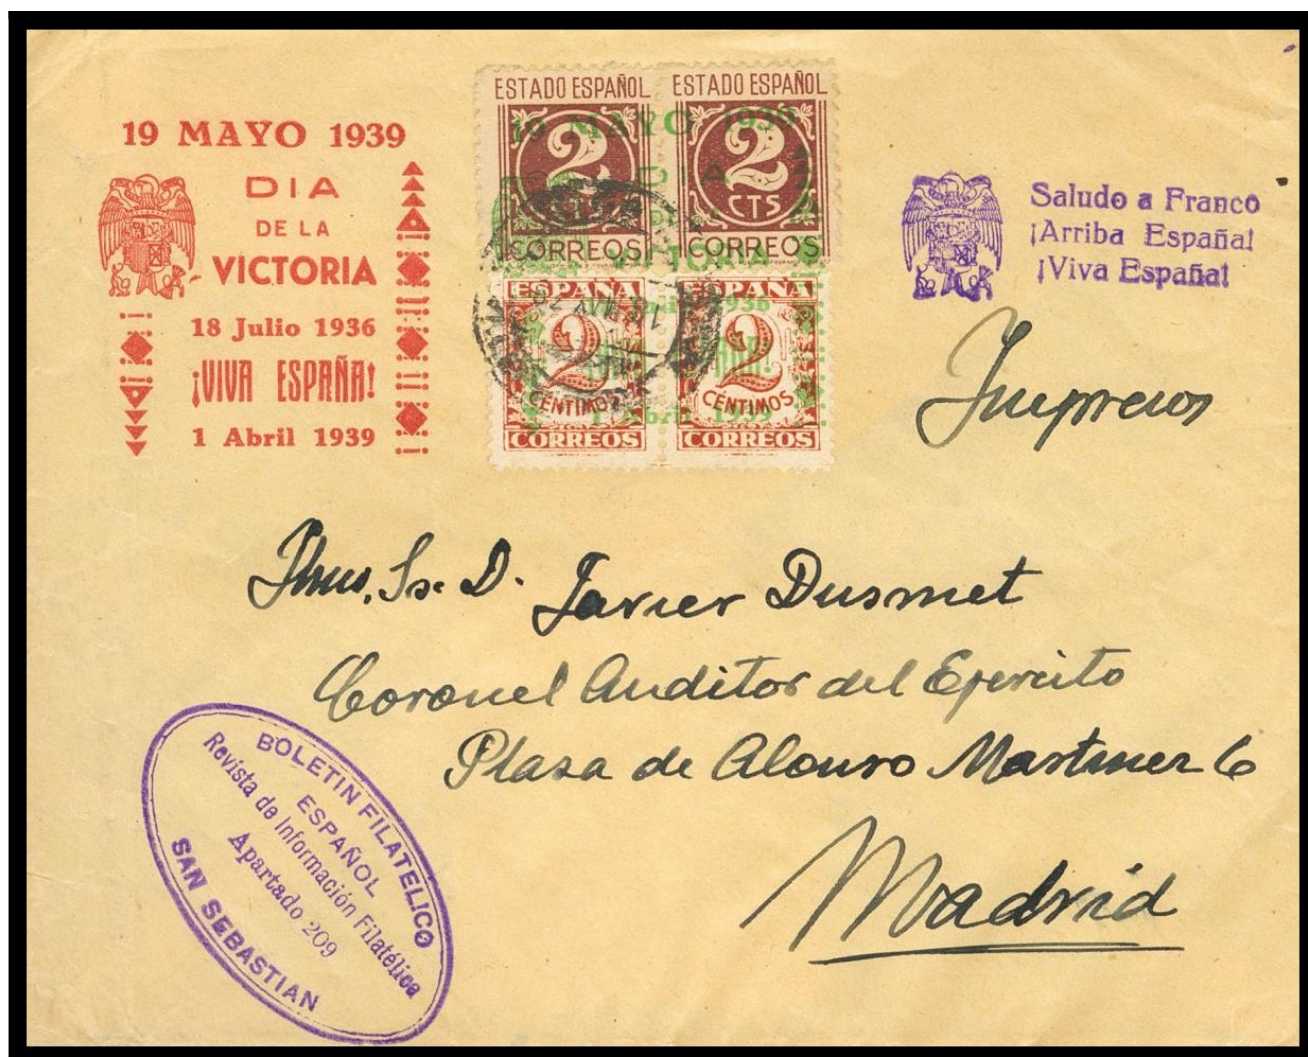 19 MAYO 1939
DIA
DE LA
VICTORIA
18 Julio 1936
¡VIVA ESPAÑA!
1 Abril 1939
ESTADO ESPAÑOL
2
CORREOS
ESTADO ESPAÑOL
2
CTS
CORREOS
ESPAÑA
2
CENTIMOS
CORREOS
ESPAÑA
2
CENTIMOS
CORREOS
19 MAYO 1939
DIA
VICTORIA
1936
1 Abril 1939
Saludo a Franco
¡Arriba España!
¡Viva España!
Impresos
Sr. D. Javier Dusmet
Coronel Auditor del Ejercito
Plaza de Alonso Martinez 6
Madrid
BOLETIN FILATELICO
ESPAÑOL
Revista de Información Filatélica
Apartado 209
SAN SEBASTIAN